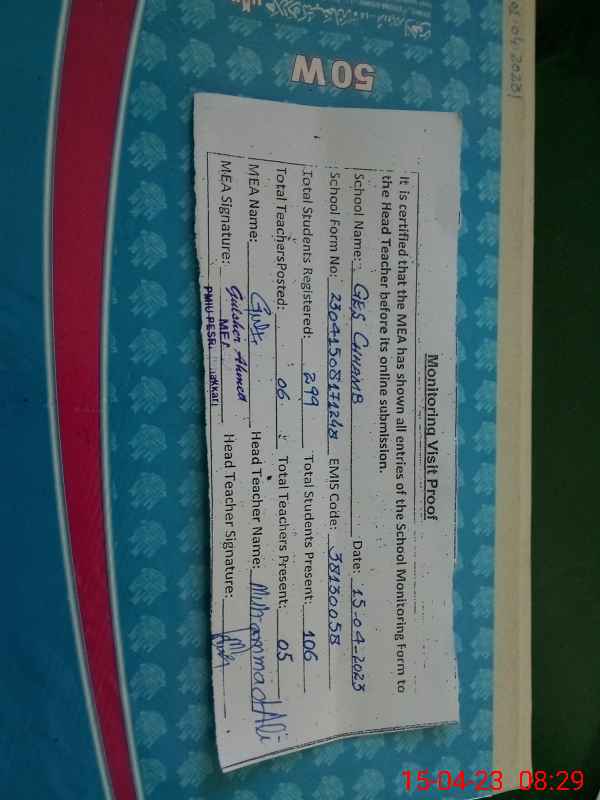 Monitoring Visit Proof
It is certified that the MEA has shown all entries of the School Monitoring Form to
the Head Teacher before its online submission.
School Name: GES CHHAMB Date: 15-04-2023
School Form No: 23041508171248 EMIS Code: 38130058
Total Students Registered: 299 Total Students Present: 106
Total TeachersPosted: 06 Total Teachers Present: 05
MEA Name: Head Teacher Name: Muhammad Ali
MEA Signature: Gulsher Ahmed Head Teacher Signature:
PMIU-PESR
50W
15-04-23 08:29